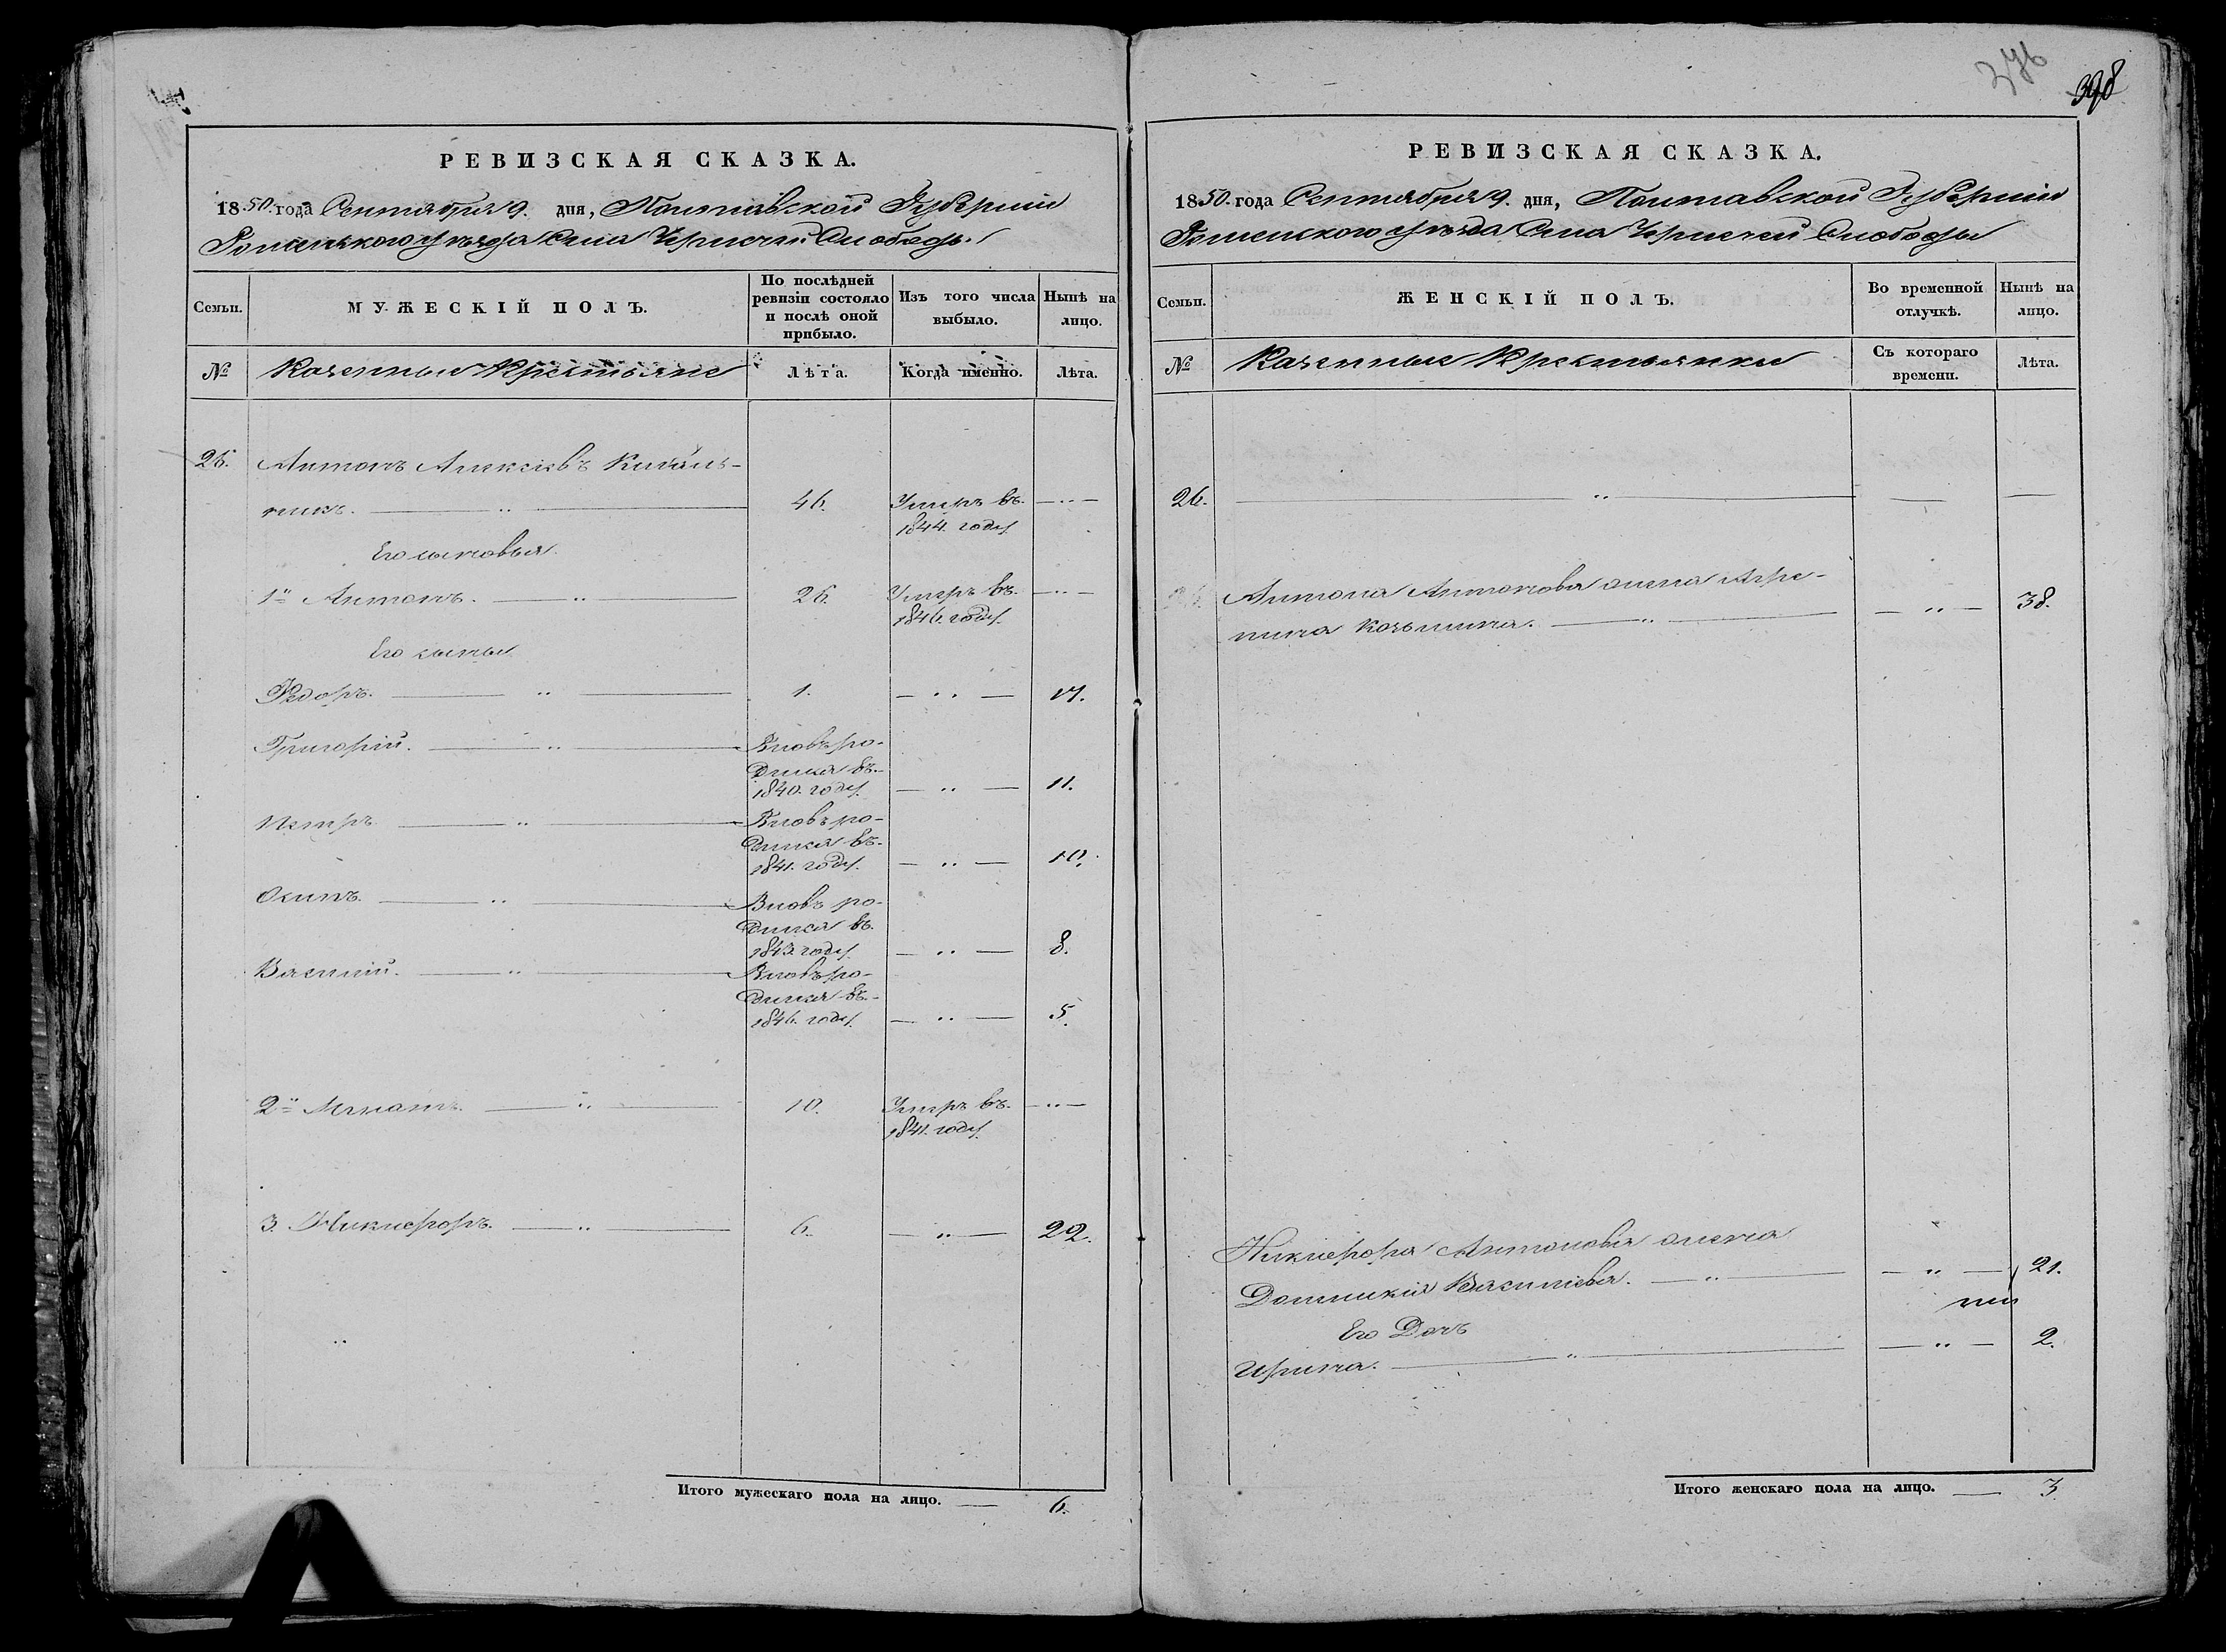 РЕВИЗСКАЯ СКАЗКА.
1850. года Сентября 9. дня, Полтавской Губернии
Роменского уезда Села Чернечей Слободы
Семьи.
МУЖЕСКІЙ ПОЛЪ.
По послѣдней ревизіи состояло и послѣ оной прибыло.
Изъ того числа выбыло.
Нынѣ на лицо.
№
Казенные Крестьяне
Лѣта.
Когда именно.
Лѣта.
26.
Антонъ Алексіевъ
никъ. — „ — 46. Умеръ въ — „ —
1844. году
Его сыновья
1й Антонъ. — „ — 26. Умеръ въ — „ —
1846. году
Его сыны
Федоръ. — „ — 1. — „ — 17.
Григорій. — „ — Вновь ро-
дился въ
1840. году — „ — 11.
Петръ — „ — Вновь ро-
дился въ
1841. году — „ — 10.
Осипъ — „ — Вновь ро-
дился въ
1843 году — „ — 8.
Василій. — „ — Вновь ро-
дился въ
1846. году — „ — 5.
2й Игнатъ. — „ — 10. Умеръ въ — „ —
1841. году
3. Никифоръ. — „ — 6. — „ — 22.
Итого мужескаго пола на лицо. — 6.
376
398
РЕВИЗСКАЯ СКАЗКА.
1850. года Сентября 9. дня, Полтавской Губернии
Роменского уезда Села Чернечей Слободы
Семьи.
ЖЕНСКІЙ ПОЛЪ.
Во временной отлучкѣ.
Нынѣ на лицо.
№
Казенные Крестьянки
Съ котораго времени.
Лѣта.
26. — „ — — —
Антона Антонова жена Агре-
пина Козьмина. — „ — — „ — 38.
Никифора Антонова жена
Домникія Василіева. — „ — — „ — 21.
Его Дочь
Ирина. — „ — — „ — 2.
Итого женскаго пола на лицо. — 3